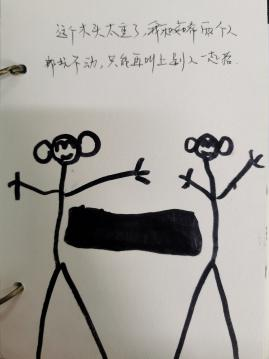 这个木头太重了，我和如希两个人
都抬不动，只能再叫上别人一起抬.